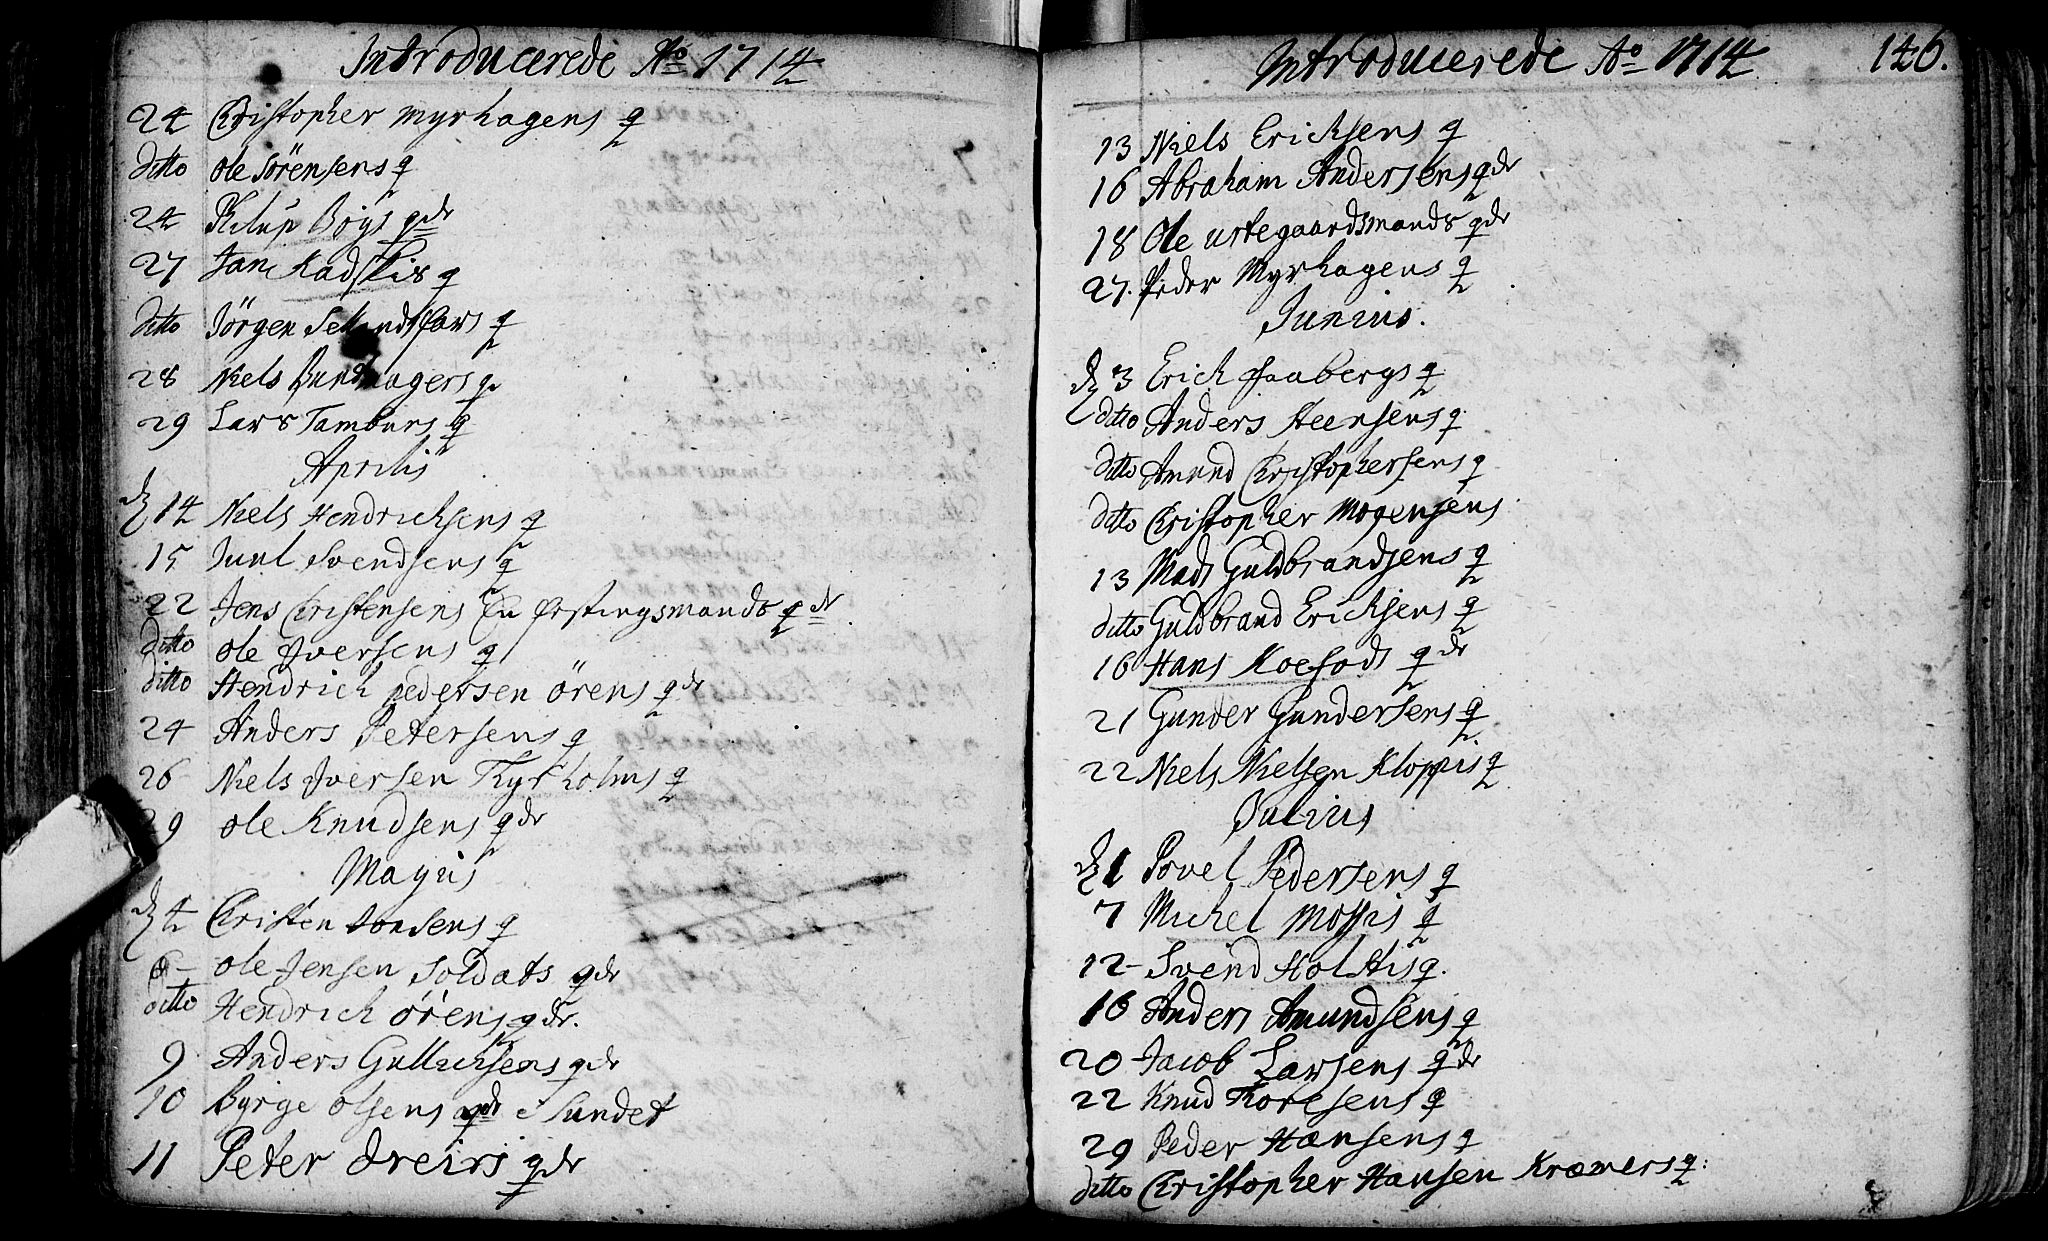 Introducerede Ao 1714
24 Christopher Myrhagens q
ditto Ole Sörensens q
24 Philip Böys qdr
27 Jan Kadskis q
ditto Jörgen q
28 Niels q
29 Lars Tamburs q
Aprilis
d 14 Niels Hendrichsens q
15 Juul Svendsens q
22 Jens Christensens En festingsmands qdr
ditto Ole Iversens q
ditto Hendrich pedersen örens qdr
24 Anders Petersens q
26 Niels Iversen Thyrholms q
29 Ole Knudsens qdr
Mayus
d 4 Christen Jonsens q
6 Ole Jensen Soldats qdr
ditto Hendrich örens qdr.
9 Anders Gullichsens qdr
10 Byrge Olsens qdr i Sundet
11 Peter dreiers qdr
Introducerede Ao 1714
146.
13 Niels Erichsens q
16 Abraham Andersens qdr
18 Ole ustegaardsmands qdr
27. Peder Myrhagens q
Junius.
d 3 Erich Faabergs q
ditto Anders Steensens q
ditto Amund Christophersens q
ditto Christopher Mogensens
13 Mads Guldbrandsens q
ditto Guldbrand Erichsens q
16 Hans Koefods qdr
21 Gunder Gundersens q
22 Niels Nielsen Kloppis q
Julius
d 1 Povel Pedersens q
7 Michel Mossis q
12 Svend Holstis q.
16 Anders Amundsens q
20 Jacob Larsens qdr
22 Knud Thoresens q
29 Peder Hansens q
ditto Christopher Hansen Kræmers q: